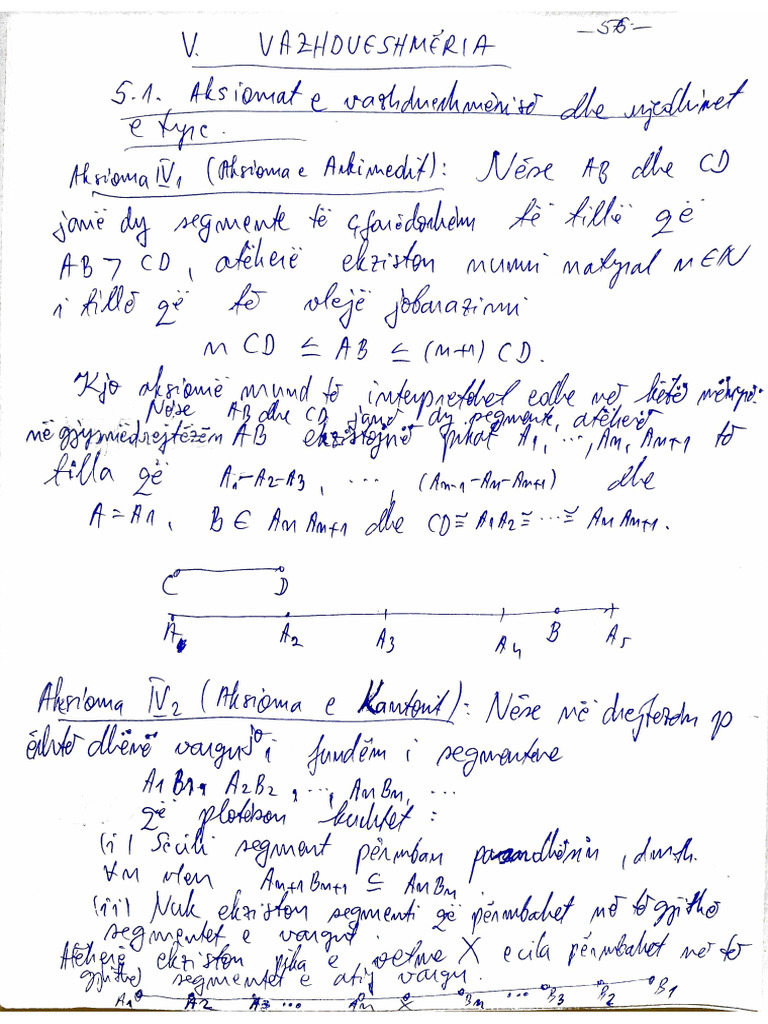 -56-
V. VAZHDUESHMËRIA
5.1. Aksiomat e vazhdueshmërisë dhe rrjedhimet
e tyre.
Aksioma IV₁ (Aksioma e Arkimedit): Nëse AB dhe CD
janë dy segmente të çfarëdoshëm të tillë që
AB > CD, atëherë ekziston numri natyral n ∈ N
i tillë që të vlejë jobarazimi
n CD ≤ AB ≤ (n+1) CD.
Kjo aksiomë mund të interpretohet edhe në këtë mënyrë:
Nëse AB dhe CD janë dy segmente, atëherë
në gjysmëdrejtëzën AB ekzistojnë pikat A₁, ..., An, An+1 të
tilla që A₁-A₂-A₃, ..., (An-1-An-An+1) dhe
A = A₁, B ∈ An An+1 dhe CD ≅ A₁A₂ ≅ ... ≅ An An+1.
C D
A₁ A₂ A₃ A₄ B A₅
Aksioma IV₂ (Aksioma e Kantorit): Nëse në drejtëzën p
është dhënë vargu i fundëm i segmenteve
A₁B₁, A₂B₂, ..., AnBn, ...
që plotëson kushtet:
(i) Secili segment përmban paraardhësin, d.m.th.
∀n vlen An+1Bn+1 ⊆ AnBn
(ii) Nuk ekziston segmenti që përmbahet në të gjithë
segmentet e vargut.
Atëherë ekziston pika e vetme X e cila përmbahet në të
gjitha segmentet e atij vargu.
A₁ A₂ A₃ ... An X Bn ... B₃ B₂ B₁